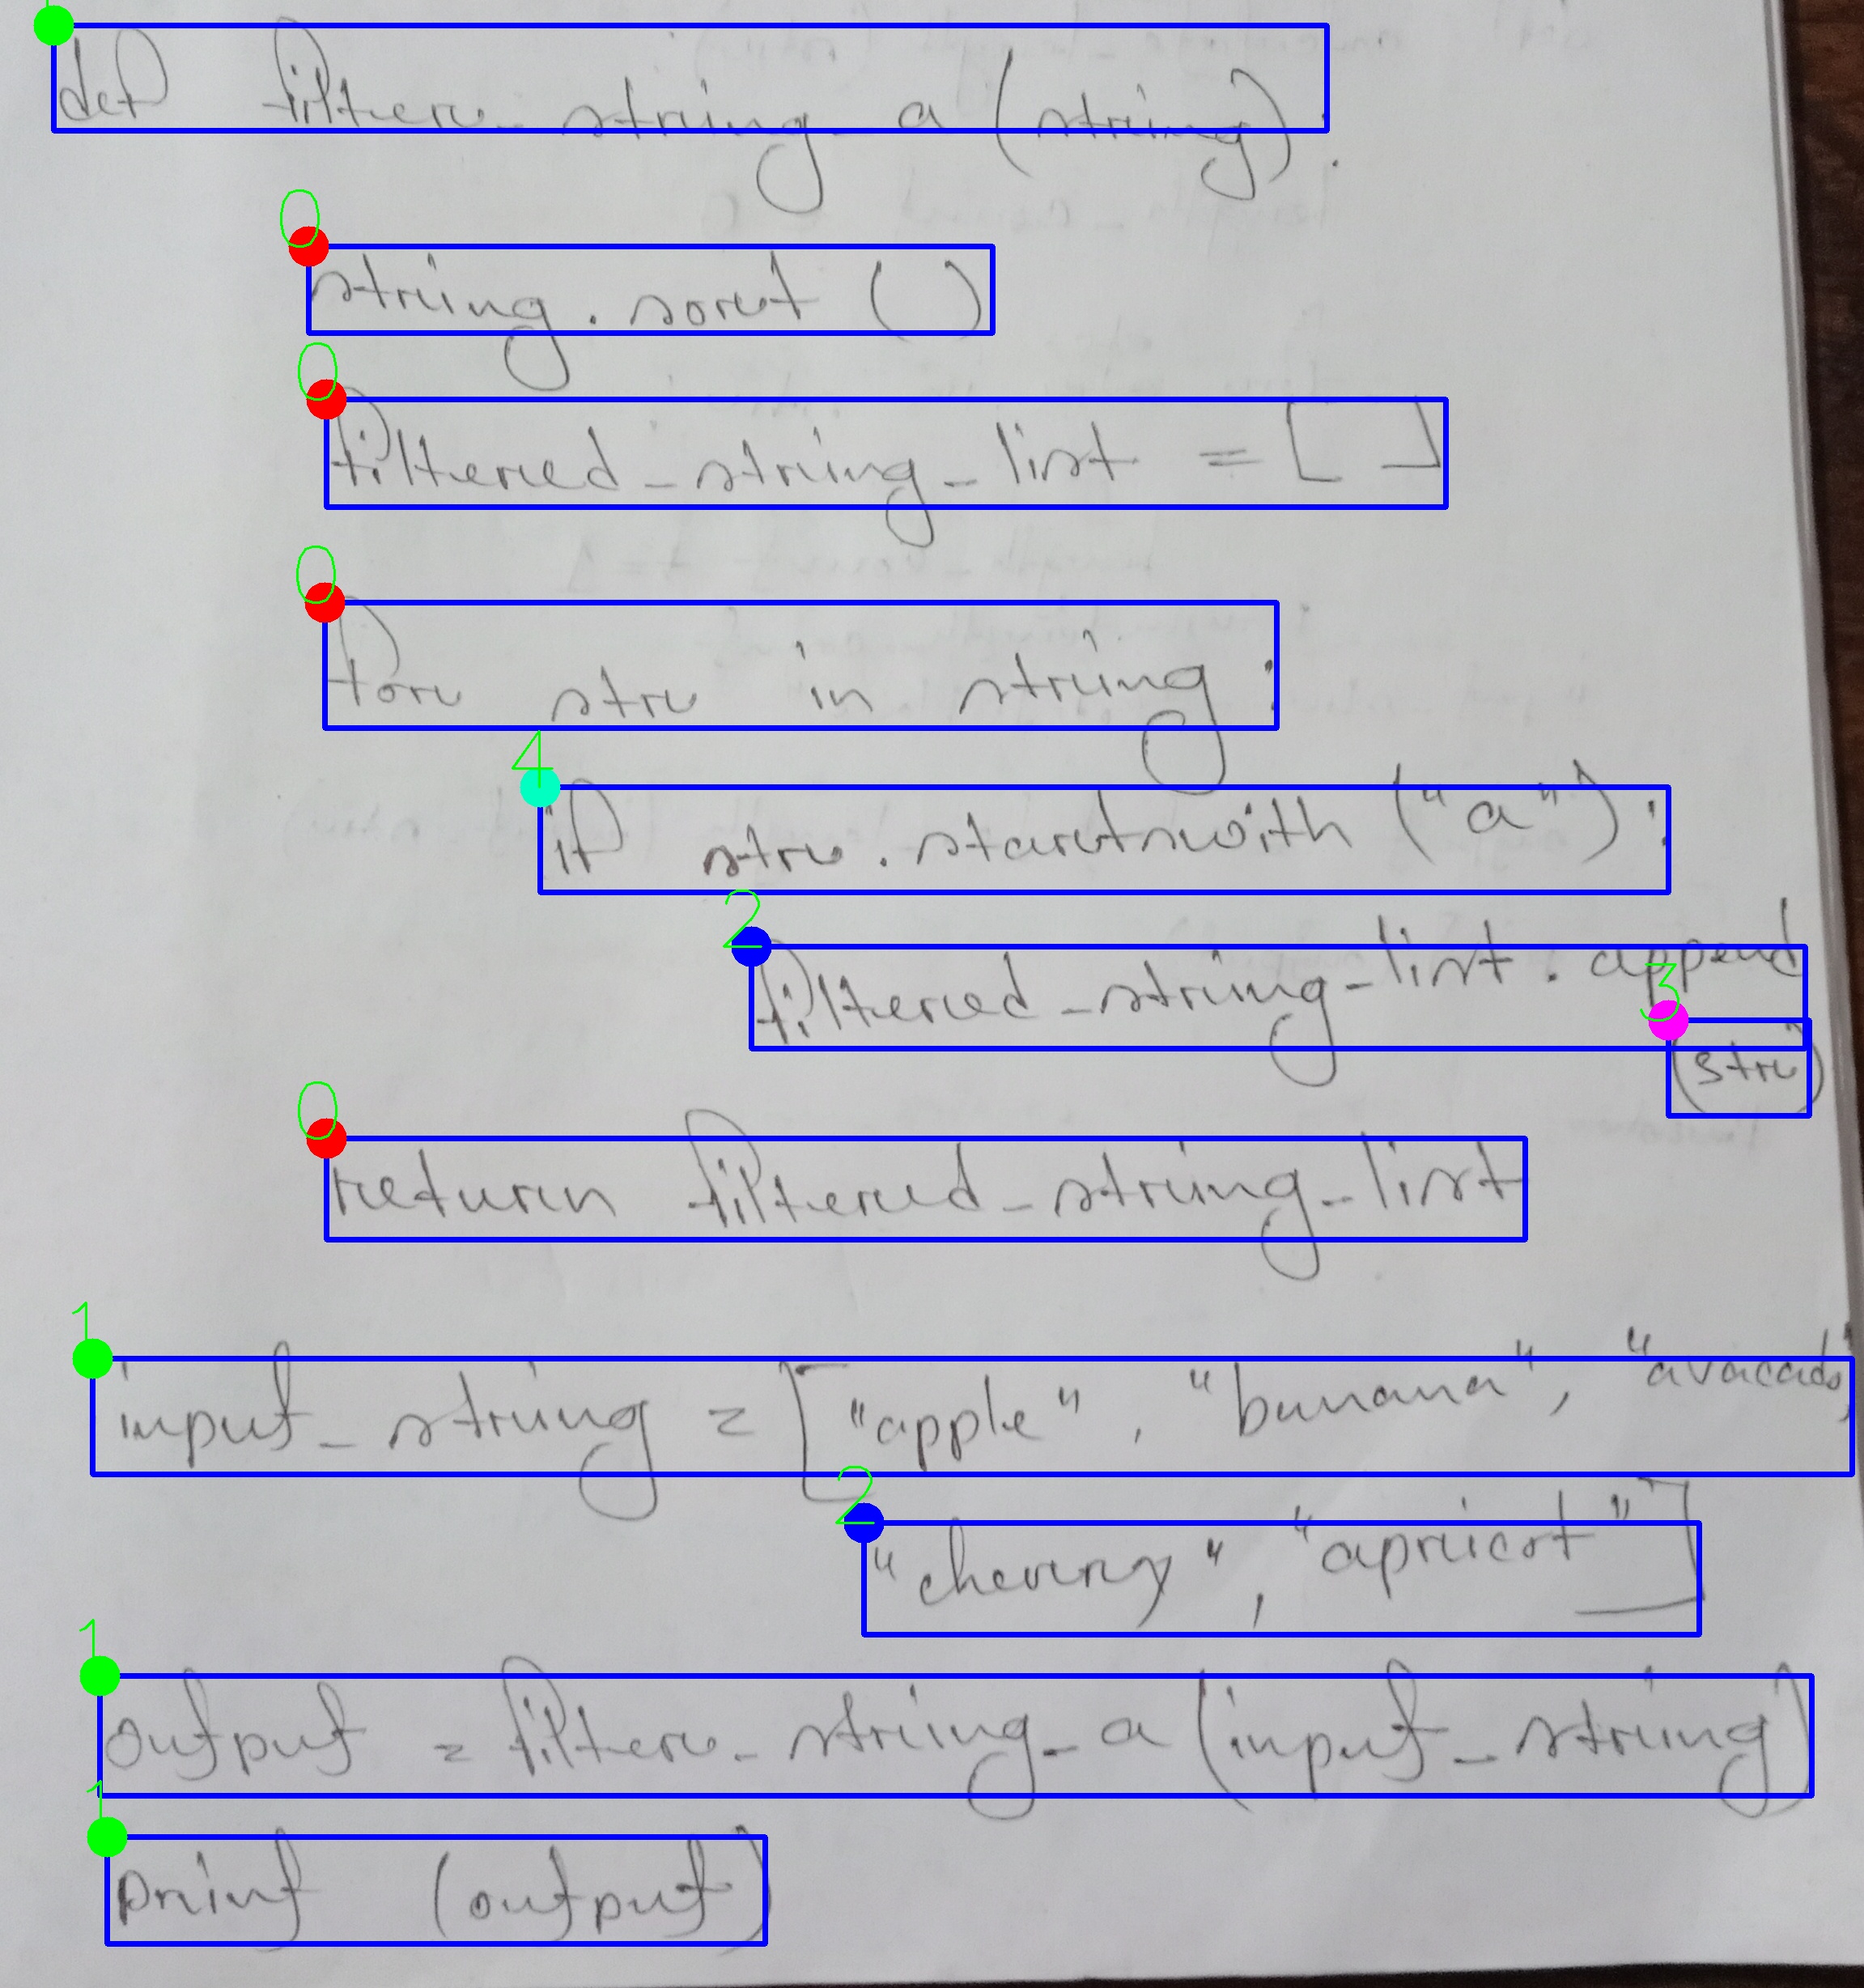 def filter_string_a (string):
string.sort ()
filtered_string_list = []
for str in string:
if str.startswith ("a"):
filtered_string_list.append
(str)
return filtered_string_list
input_string = ["apple", "banana", "avacado",
"cherry", "apricot"]
output = filter_string_a (input_string)
print (output)